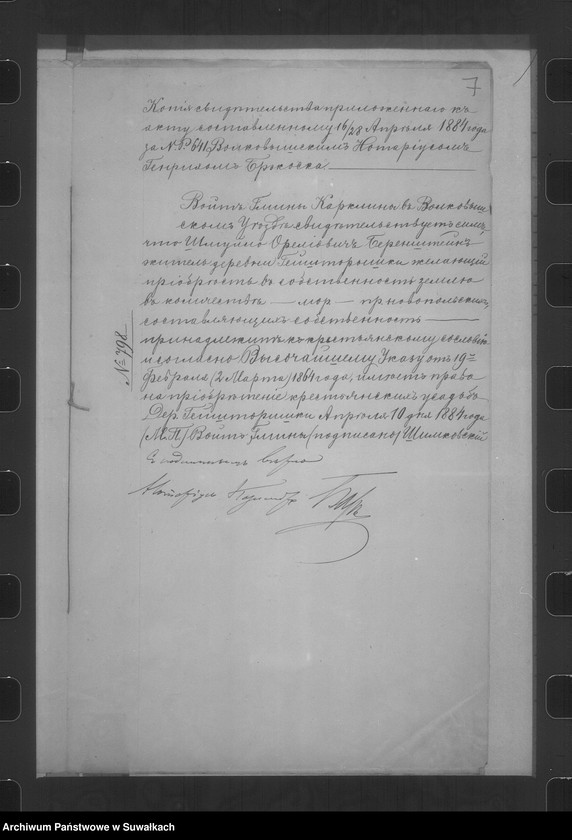 7
Копія свидѣтельства приложеннаго къ
акту составленному 16/28 Апрѣля 1884 года
за №. 641, Волковышскимъ Нотаріусомъ
Генрихомъ
Войтъ Гмины Карклины въ Волковыш
скомъ Уѣздѣ свидѣтельствуетъ симъ,
что Шмуйло Беренштейнъ
житель деревни желающій
пріобрѣсть въ собственность землю
въ количествѣ — мор — прновопольских,
составляющихъ собственность —
принадлежитъ къ крестьянскому сословію
и согласно Высочайшему Указу отъ 19го
Февраля (2 Марта) 1864 года, имѣетъ право
на пріобрѣтеніе крестьянскихъ усадьбъ
Дер. Апрѣля 10 дня 1884 года
(М.П.) Войтъ Гмины (подписано) Шимковскій
№ 798
Съ подлиннымъ вѣрно
Archiwum Państwowe w Suwałkach